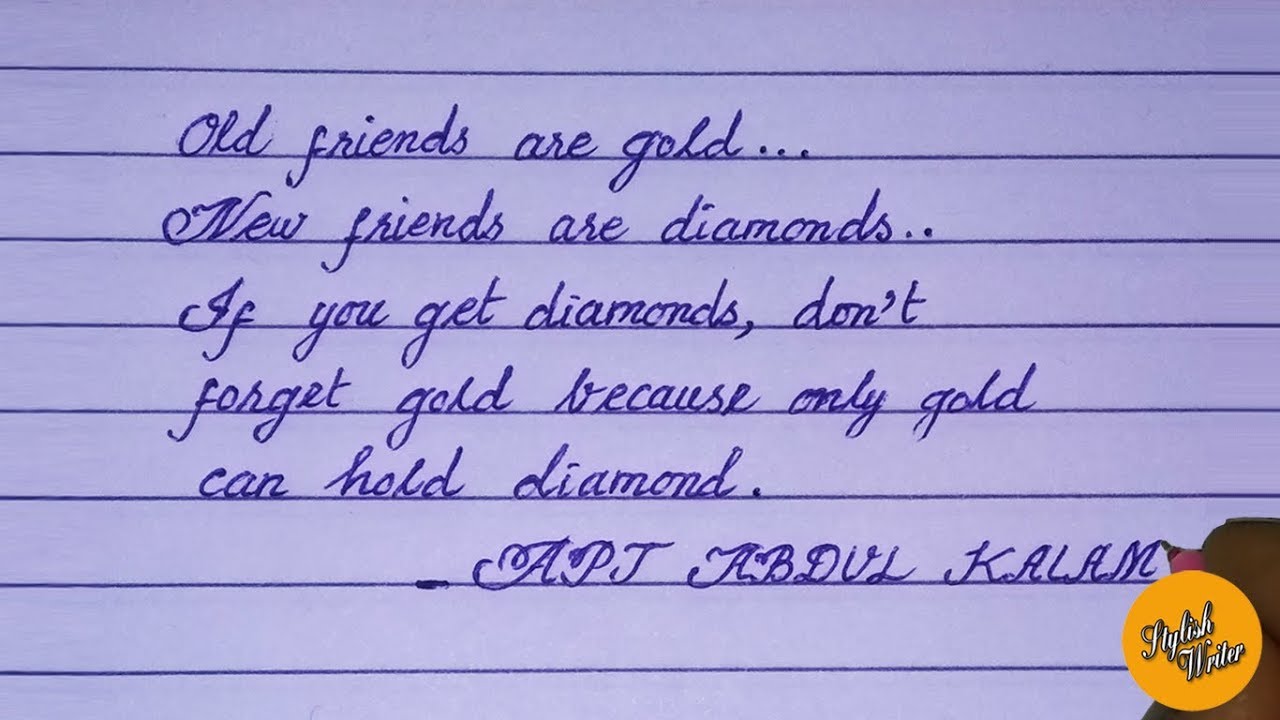 Old friends are gold...
New friends are diamonds..
If you get diamonds, don't
forget gold because only gold
can hold diamond.
- APJ ABDUL KALAM
Stylish
Writer